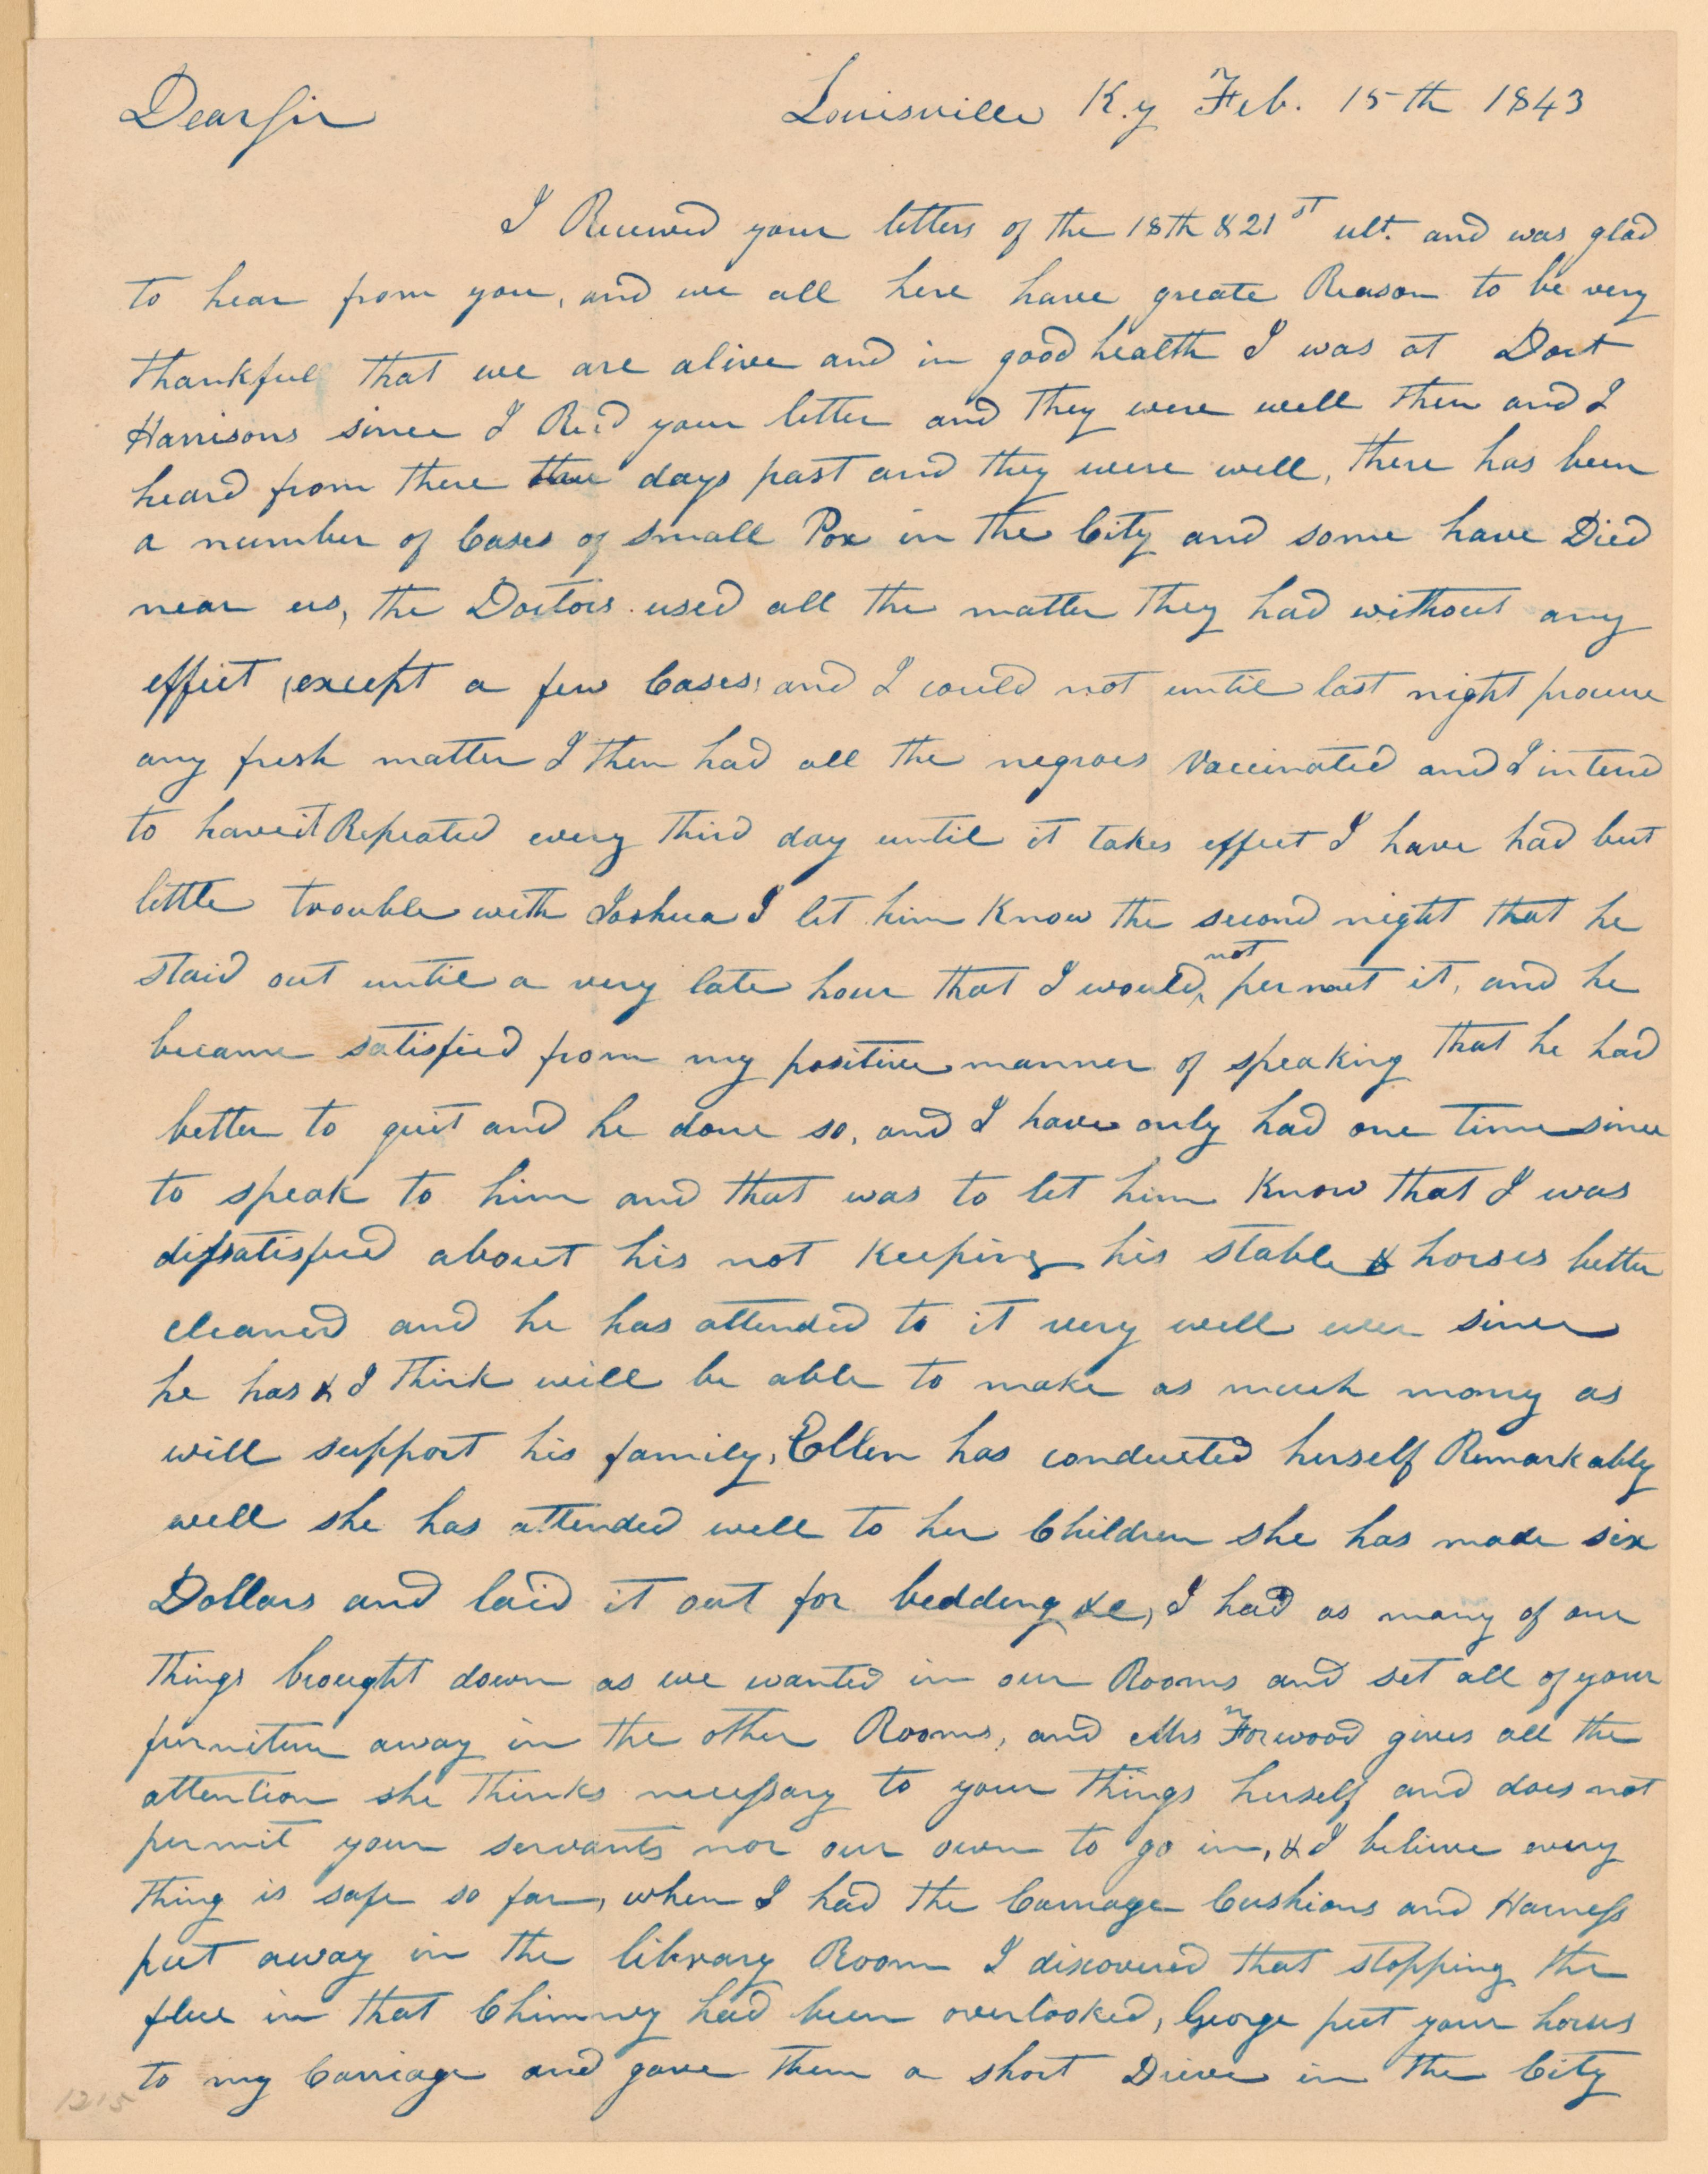 Dear Sir Louisville K.y Feb. 15th 1843
I Received your letters of the 18th & 21st ult. and was glad
to hear from you, and we all here have greate Reason to be very
thankful that we are alive and in good health I was at Doct
Harrisons since I Recd your letter and they were well then and I
heard from there three days past and they were well, there has been
a number of Cases of small Pox in the City and some have Died
near us, the Doctors used all the matter they had without any
effect (except a few Cases) and I could not until last night procure
any fresh matter I then had all the negroes Vaccinated and I intend
to have it Repeated every third day until it takes effect I have had but
little trouble with Joshua I let him Know the second night that he
staid out until a very late hour that I would not permit it, and he
became satisfied from my positive manner of speaking that he had
better to quit and he done so, and I have only had one time since
to speak to him and that was to let him Know that I was
dissatisfied about his not Keeping his stable & horses better
cleaned and he has attended to it very well ever since
he has & I think will be able to make as much mony as
will support his family, Ellen has conducted herself Remarkably
well she has attended well to her Children she has made six
Dollars and laid it out for bedding &c, I had as many of our
things brought down as we wanted in our Rooms and set all of your
furniture away in the other Rooms, and Mrs Forwood gives all the
attention she thinks necessary to your things herself and does not
permit your servants nor our own to go in, & I believe every
thing is safe so far, when I had the Carriage Cushions and Harness
put away in the library Room I discovered that stopping the
flue in that Chimney had been overlooked, George put your horses
to my Carriage and gave them a short Drive in the City
1215